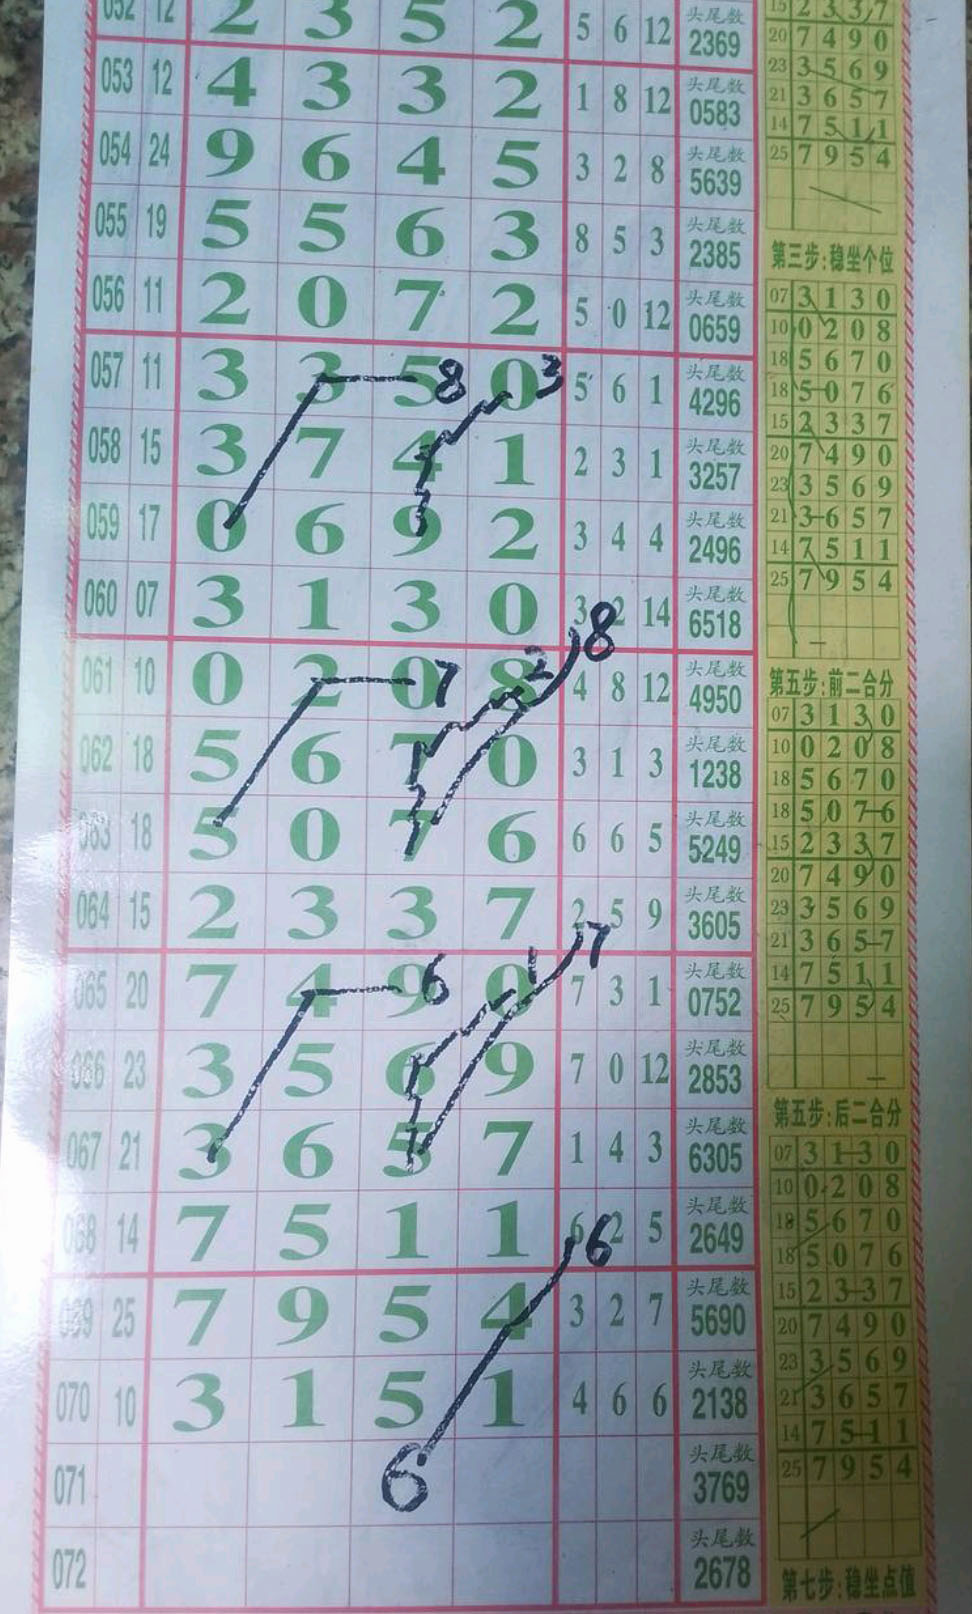 052 12 2 3 5 2 5 6 12 头尾数 2369
053 12 4 3 3 2 1 8 12 头尾数 0583
054 24 9 6 4 5 3 2 8 头尾数 5639
055 19 5 5 6 3 8 5 3 头尾数 2385
056 11 2 0 7 2 5 0 12 头尾数 0659
057 11 3 3 5 0 5 6 1 头尾数 4296
8 3
058 15 3 7 4 1 2 3 1 头尾数 3257
059 17 0 6 9 2 3 4 4 头尾数 2496
060 07 3 1 3 0 3 2 14 头尾数 6518
8
061 10 0 2 0 8 4 8 12 头尾数 4950
7 2
062 18 5 6 7 0 3 1 3 头尾数 1238
063 18 5 0 7 6 6 6 5 头尾数 5249
064 15 2 3 3 7 2 5 9 头尾数 3605
7
065 20 7 4 9 0 7 3 1 头尾数 0752
6 1
066 23 3 5 6 9 7 0 12 头尾数 2853
067 21 3 6 5 7 1 4 3 头尾数 6305
068 14 7 5 1 1 6 2 5 头尾数 2649
6
069 25 7 9 5 4 3 2 7 头尾数 5690
070 10 3 1 5 1 4 6 6 头尾数 2138
071 头尾数 3769
6
072 头尾数 2678
15 2 3 3 7
20 7 4 9 0
23 3 5 6 9
21 3 6 5 7
14 7 5 1 1
25 7 9 5 4
第三步:稳坐个位
07 3 1 3 0
10 0 2 0 8
18 5 6 7 0
18 5 0 7 6
15 2 3 3 7
20 7 4 9 0
23 3 5 6 9
21 3 6 5 7
14 7 5 1 1
25 7 9 5 4
第五步:前二合分
07 3 1 3 0
10 0 2 0 8
18 5 6 7 0
18 5 0 7 6
15 2 3 3 7
20 7 4 9 0
23 3 5 6 9
21 3 6 5 7
14 7 5 1 1
25 7 9 5 4
第五步:后二合分
07 3 1 3 0
10 0 2 0 8
18 5 6 7 0
18 5 0 7 6
15 2 3 3 7
20 7 4 9 0
23 3 5 6 9
21 3 6 5 7
14 7 5 1 1
25 7 9 5 4
第七步:稳坐点值